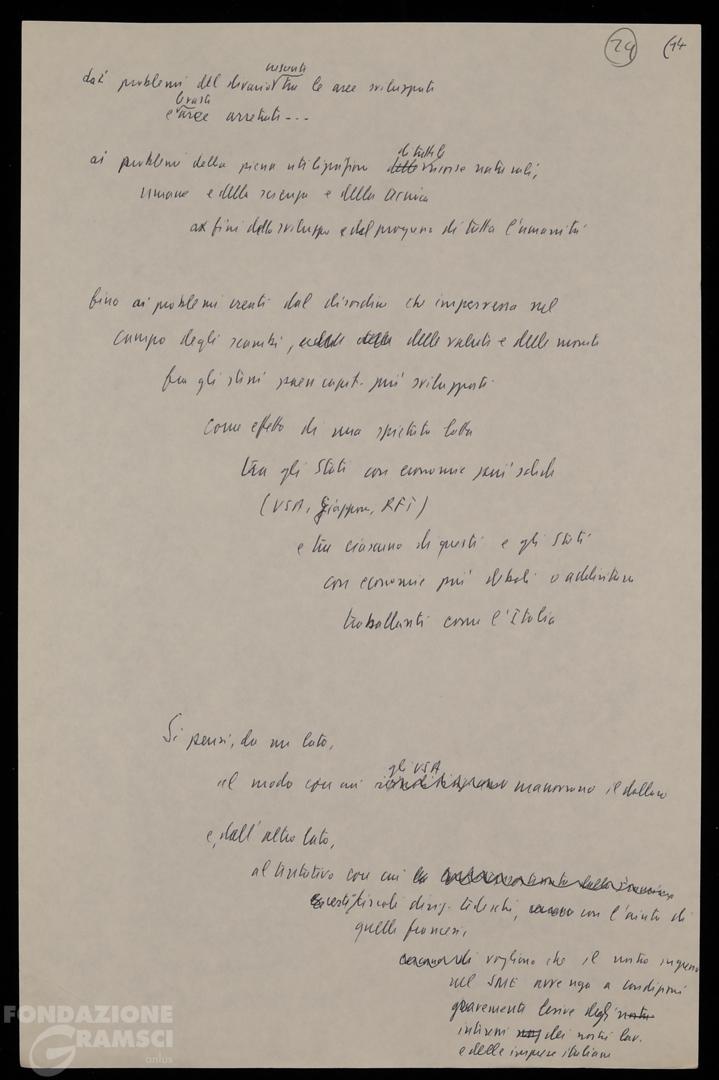 29 (14
dai problemi del divario crescente tra le aree sviluppate
e le vaste aree arretrate ---
ai problemi della piena utilizzazione di tutte le risorse naturali,
umane e della scienza e della tecnica
ai fini dello sviluppo e del progresso di tutta l'umanità
fino ai problemi creati dal disordine che imperversa nel
campo degli scambi, delle valute e delle monete
fra gli stessi paesi capit. più sviluppati
Come effetto di una spietata lotta
tra gli Stati con economie più solide
(USA, Giappone, RFT)
e tra ciascuno di questi e gli Stati
con economie più deboli o addirittura
traballanti come l'Italia
Si pensi, da un lato,
al modo con cui gli USA manovrano il dollaro
e, dall'altro lato,
al tentativo con cui
circoli dirig. tedeschi, con l'aiuto di
quelli francesi,
vogliono che il nostro ingresso
nel SME avvenga a condizioni
gravemente lesive degli
interessi dei nostri lav.
e delle imprese italiane
FONDAZIONE
GRAMSCI
onlus